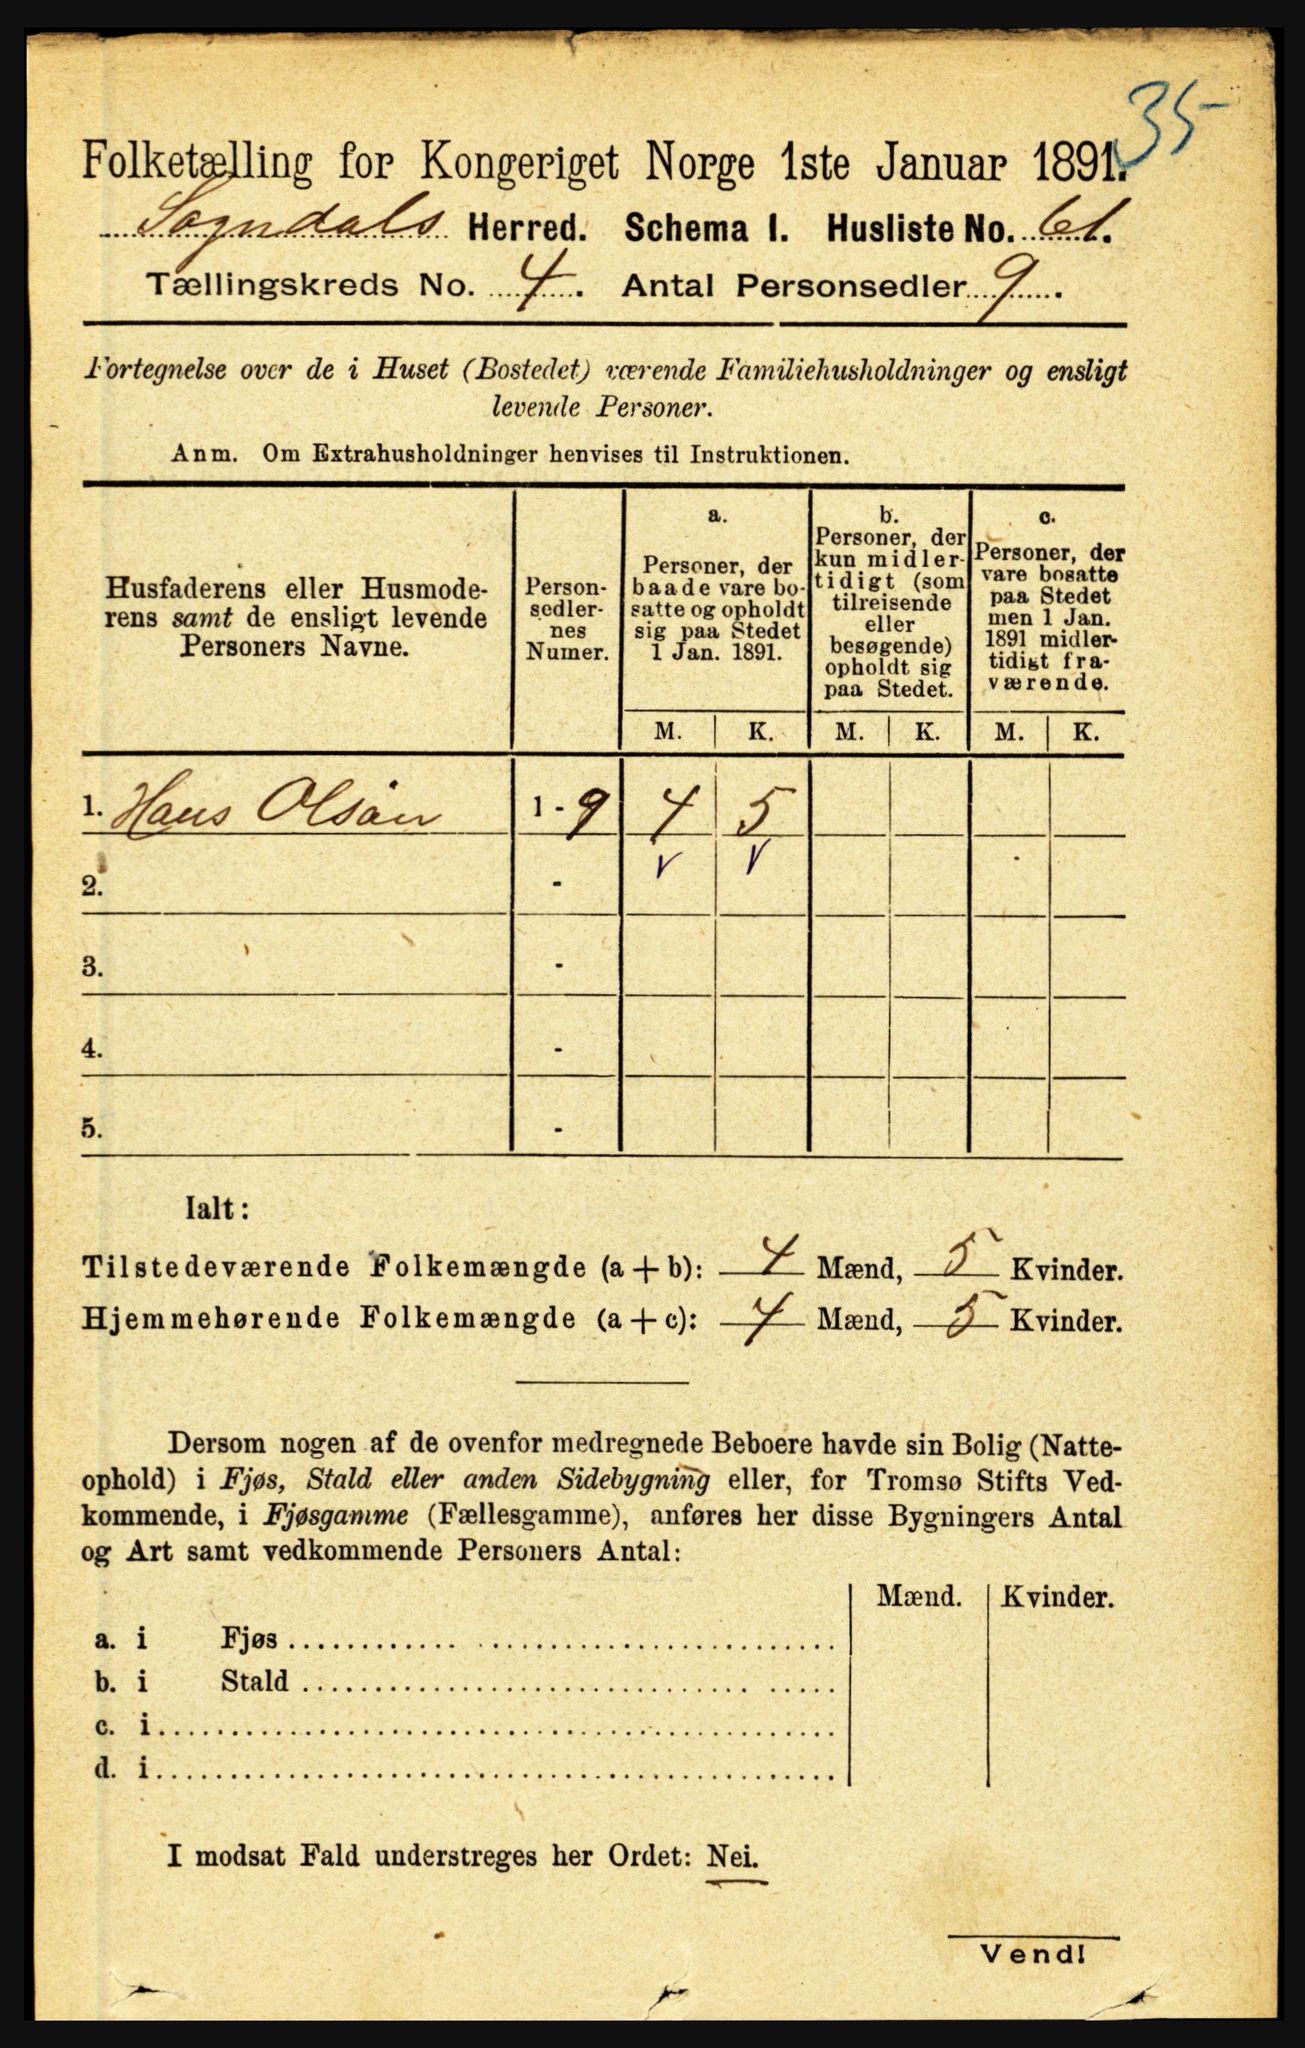 35
Folketælling for Kongeriget Norge 1ste Januar 1891.
Sogndals Herred. Schema I. Husliste No. 61.
Tællingskreds No. 4. Antal Personsedler 9.
Fortegnelse over de i Huset (Bostedet) værende Familiehusholdninger og ensligt
levende Personer.
Anm. Om Extrahusholdninger henvises til Instruktionen.
Husfaderens eller Husmode-
rens samt de ensligt levende
Personers Navne.
Person-
sedler-
nes
Numer.
a.
Personer, der
baade vare bo-
satte og opholdt
sig paa Stedet
1 Jan. 1891.
b.
Personer, der
kun midler-
tidigt (som
tilreisende
eller
besøgende)
opholdt sig
paa Stedet.
c.
Personer, der
vare bosatte
paa Stedet
men 1 Jan.
1891 midler-
tidigt fra-
værende.
M. K. M. K. M. K.
1. Hans Olsen 1 - 9 4 5
2. - v v
3. -
4. -
5. -
Ialt:
Tilstedeværende Folkemængde (a + b): 4 Mænd, 5 Kvinder.
Hjemmehørende Folkemængde (a + c): 4 Mænd, 5 Kvinder.
Dersom nogen af de ovenfor medregnede Beboere havde sin Bolig (Natte-
ophold) i Fjøs, Stald eller anden Sidebygning eller, for Tromsø Stifts Ved-
kommende, i Fjøsgamme (Fællesgamme), anføres her disse Bygningers Antal
og Art samt vedkommende Personers Antal:
Mænd. Kvinder.
a. i Fjøs
b. i Stald
c. i
d. i
I modsat Fald understreges her Ordet: Nei.
Vend!